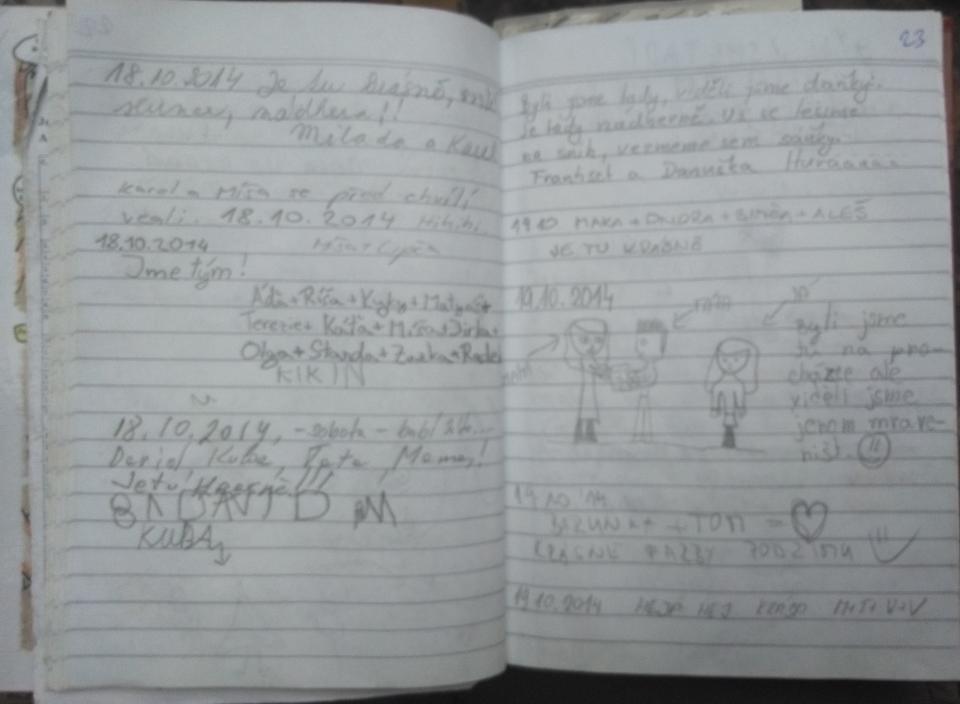 18.10.2014 Je tu krásně, 
slunce, nádhera!!
Milada a Karel
Karel a Míša se před chvílí
vzali. 18.10.2014 Hihihi
18.10.2014
Jsme tým!
Áďa+Ríša+Kyky+Matyáš+
Terezie+ Káťa+Míša+Jirka+
Olga+Standa+Zuzka+Radek
KIKIN
18.10.2014, -sobota - babí léto...
Daniel, Kuba, Táta, Mama,!
Je tu krásně!!!
DAVID M
KUBA
23
Byli jsme tady, viděli jsme daňky.
Je tady nádherně. Už se těšíme
na sníh, vezmeme sem sáňky.
František a Danuška Huráááá
19.10 MAKA+ONDRA+SIMČA+ALEŠ
JE TU KRÁSNĚ
19.10.2014
JÁ
Byli jsme
tu na pro-
cházce ale
viděli jsme
jenom mrave-
ništ.
19.10.'14
+ TOM =
KRÁSNÉ BARVY PODZIMU
19.10.2014 HEJA HEJ